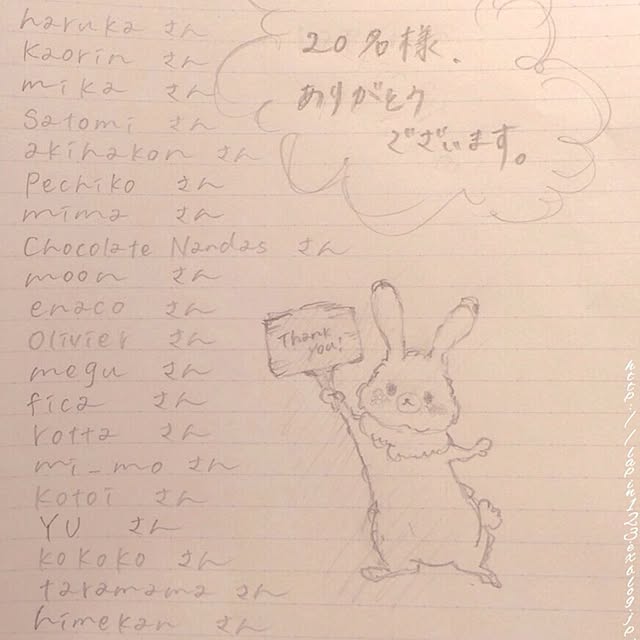 haruka さん
kaorin さん
mika さん
Satomi さん
akihakon さん
Pechiko さん
mima さん
Chocolate Nandas さん
moon さん
enaco さん
Olivier さん
megu さん
fica さん
rotta さん
mi_mo さん
kotoi さん
YU さん
kokoko さん
taramama さん
himekan さん
20名様、
ありがとう
ございます。
Thank
you!